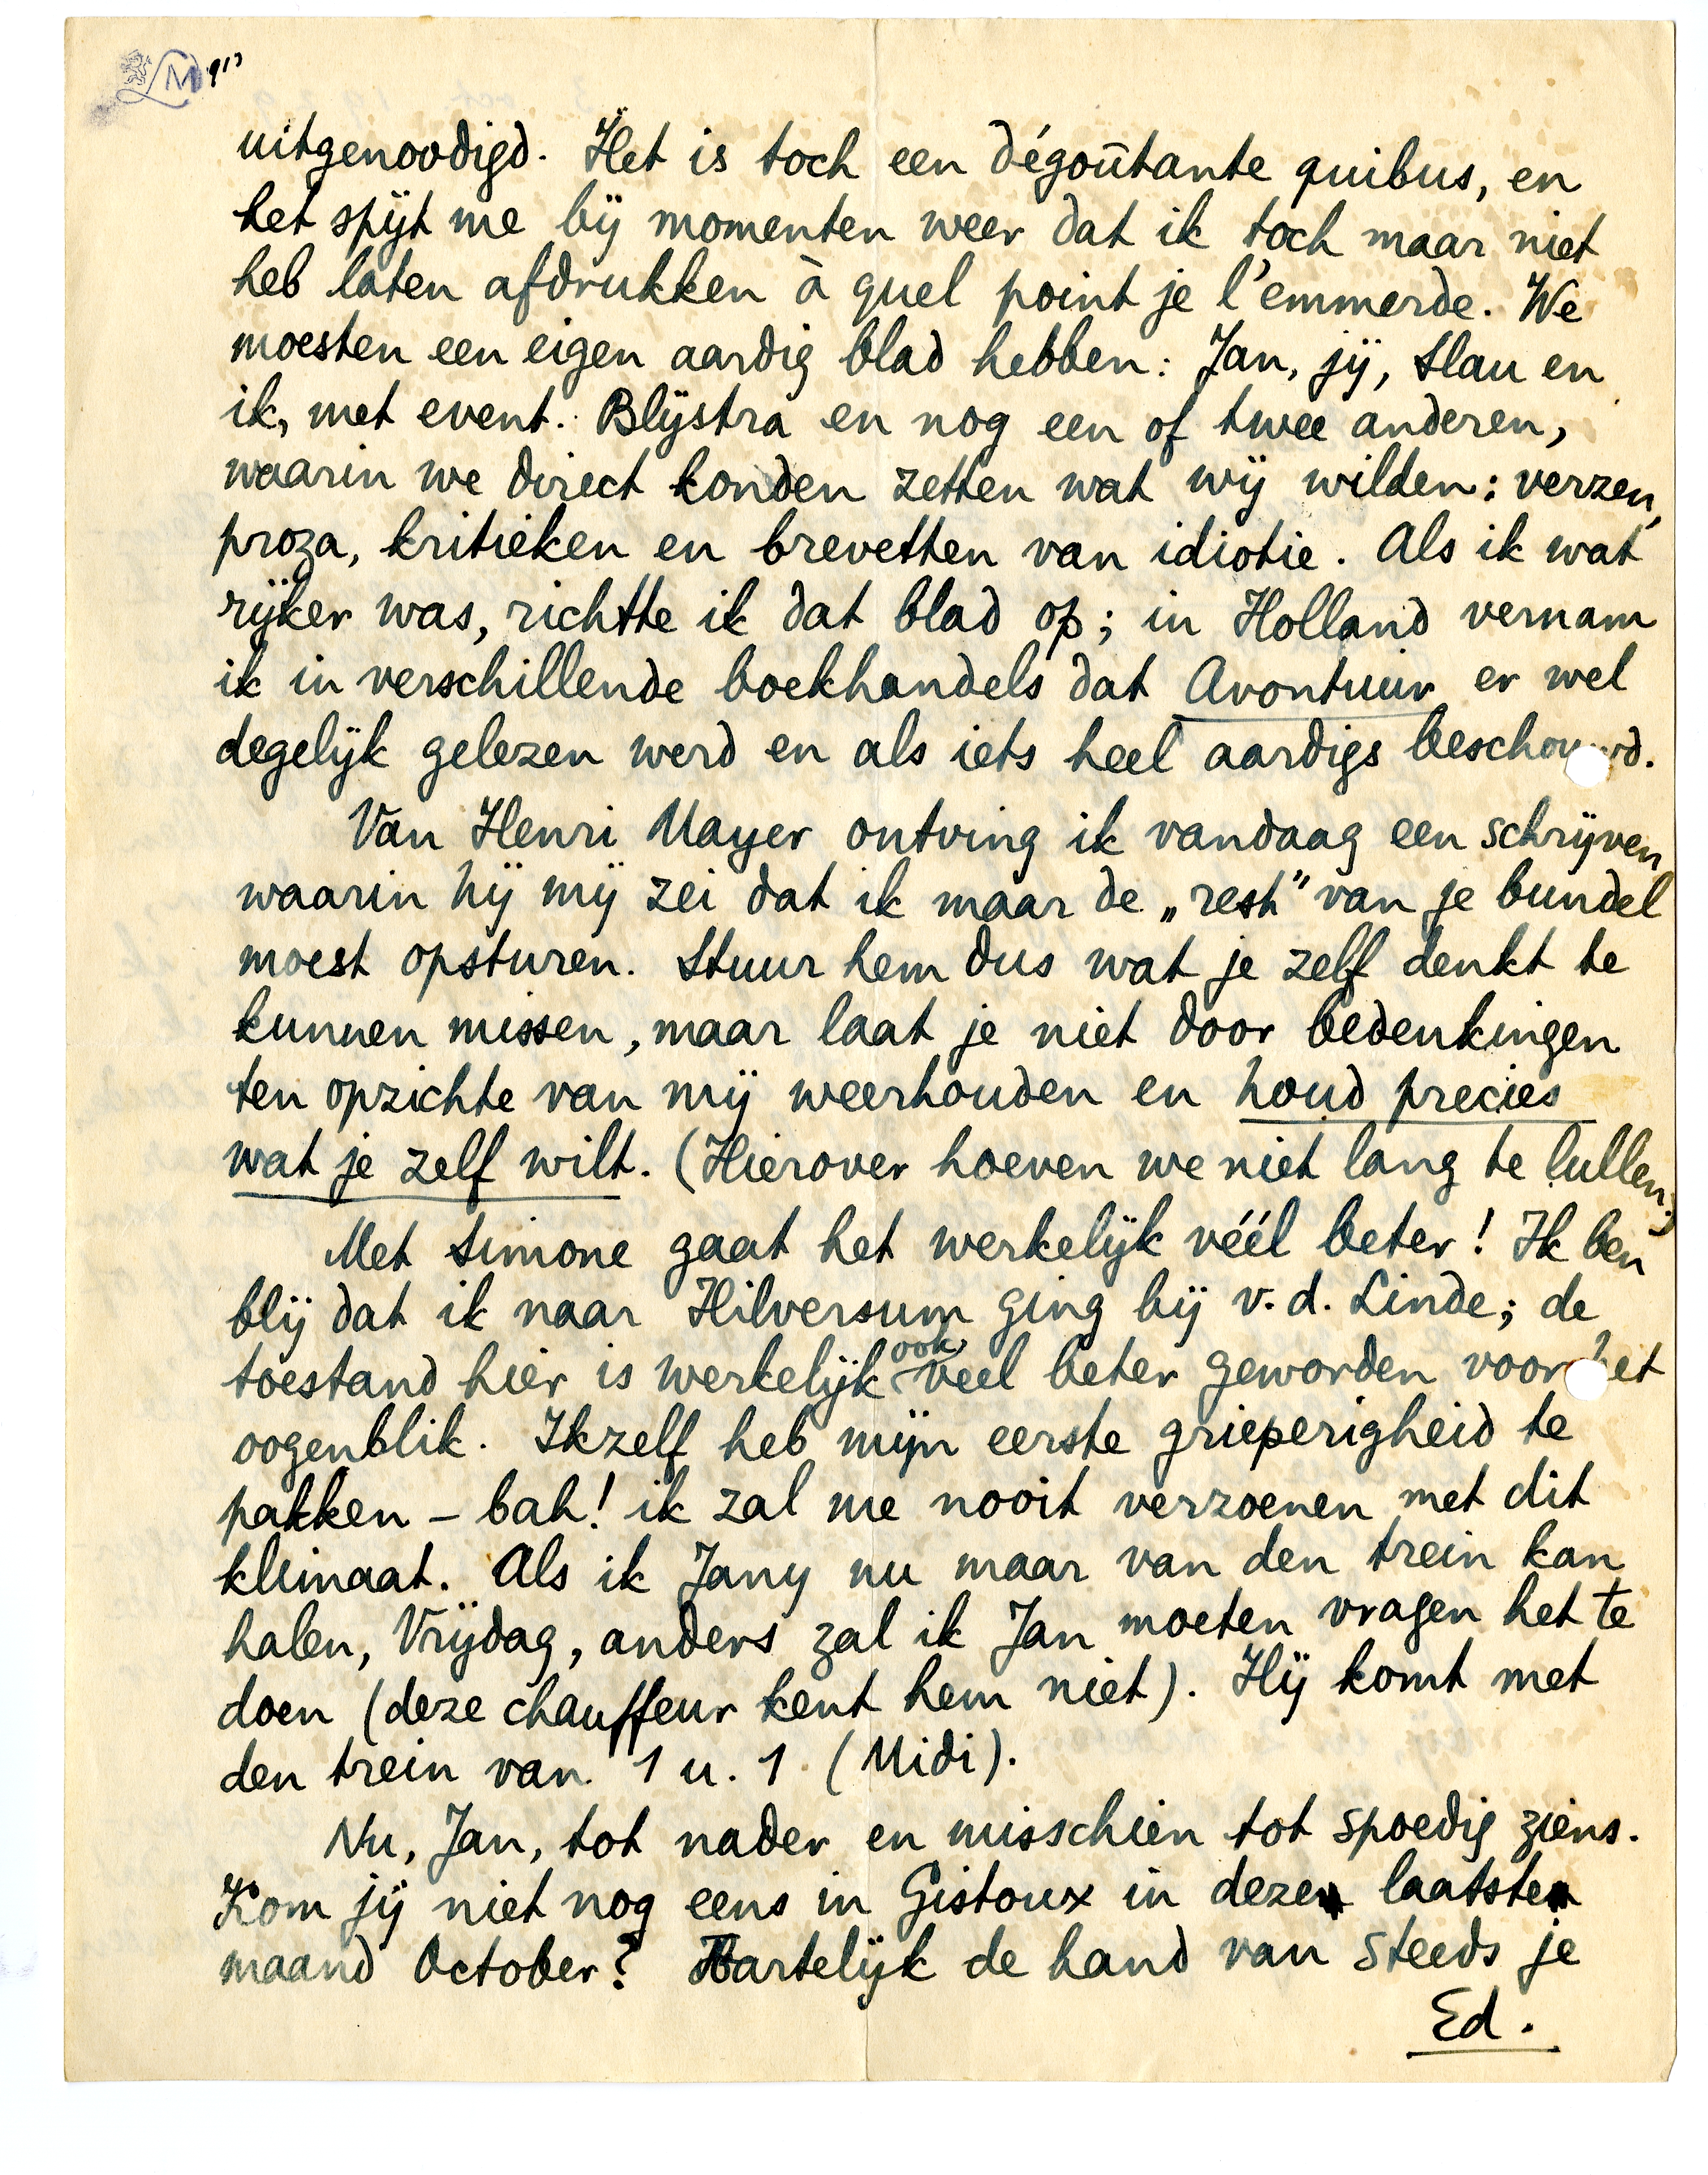 uitgenoodigd. Het is toch een dégoûtante quibus, en
het spijt me bij momenten weer dat ik toch maar niet
heb laten afdrukken à quel point je l'emmerde. We
moesten een eigen aardig blad hebben: Jan, jij, Slau en
ik, met event. Blijstra en nog een of twee anderen,
waarin we direct konden zetten wat wij wilden: verzen,
proza, kritieken en brevetten van idiotie. Als ik wat
rijker was, richtte ik dat blad op; in Holland vernam
ik in verschillende boekhandels dat Avontuur er wel
degelijk gelezen werd en als iets heel aardigs beschouwd.
Van Henri Mayer ontving ik vandaag een schrijven
waarin hij mij zei dat ik maar de „rest” van je bundel
moest opsturen. Stuur hem dus wat je zelf denkt te
kunnen missen, maar laat je niet door bedenkingen
ten opzichte van mij weerhouden en houd precies
wat je zelf wilt. (Hierover hoeven we niet lang te lullen.)
Met Simone gaat het werkelijk véél beter! Ik ben
blij dat ik naar Hilversum ging bij v. d. Linde; de
toestand hier is werkelijk ook veel beter geworden voor het
oogenblik. Ikzelf heb mijn eerste grieperigheid te
pakken – bah! ik zal me nooit verzoenen met dit
klimaat. Als ik Jany nu maar van den trein kan
halen, Vrijdag, anders zal ik Jan moeten vragen het te
doen (deze chauffeur kent hem niet). Hij komt met
den trein van 1 u. 1 (Midi).
Nu, Jan, tot nader en misschien tot spoedig ziens.
Kom jij niet nog eens in Gistoux in deze laatste
maand October? Hartelijk de hand van steeds je
Ed.